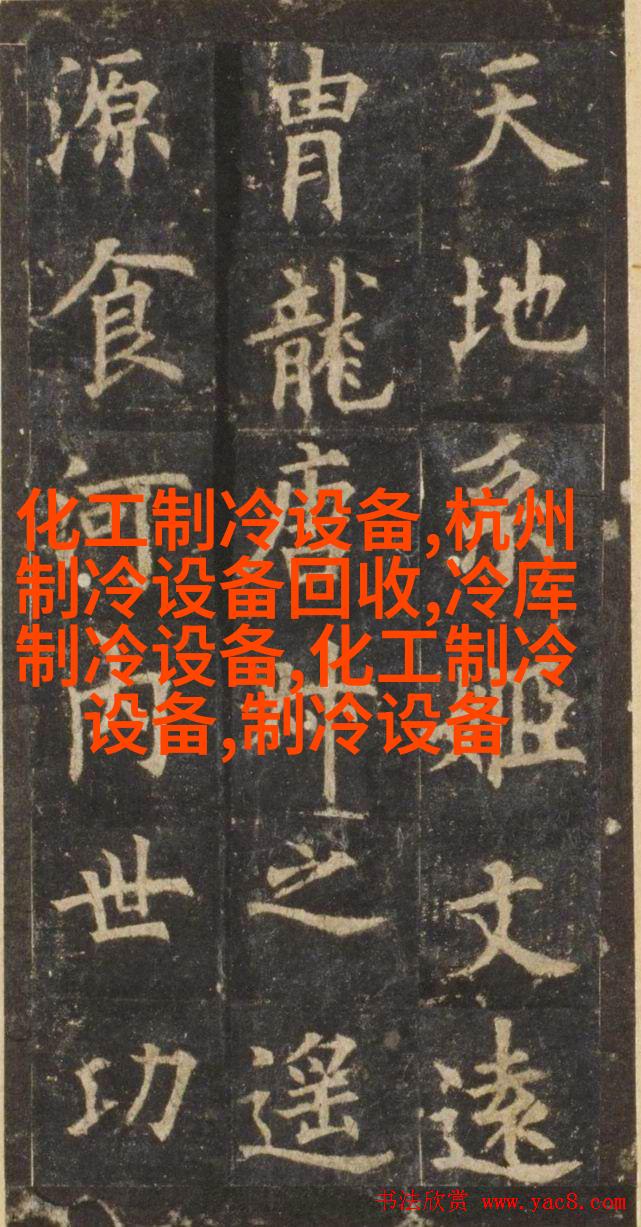 天地系姬文遠
胄龍唐之遥
源食河内世功
化工制冷设备,杭州
制冷设备回收,冷库
制冷设备,化工制冷
设备,制冷设备
书法欣赏 www.yac8.com